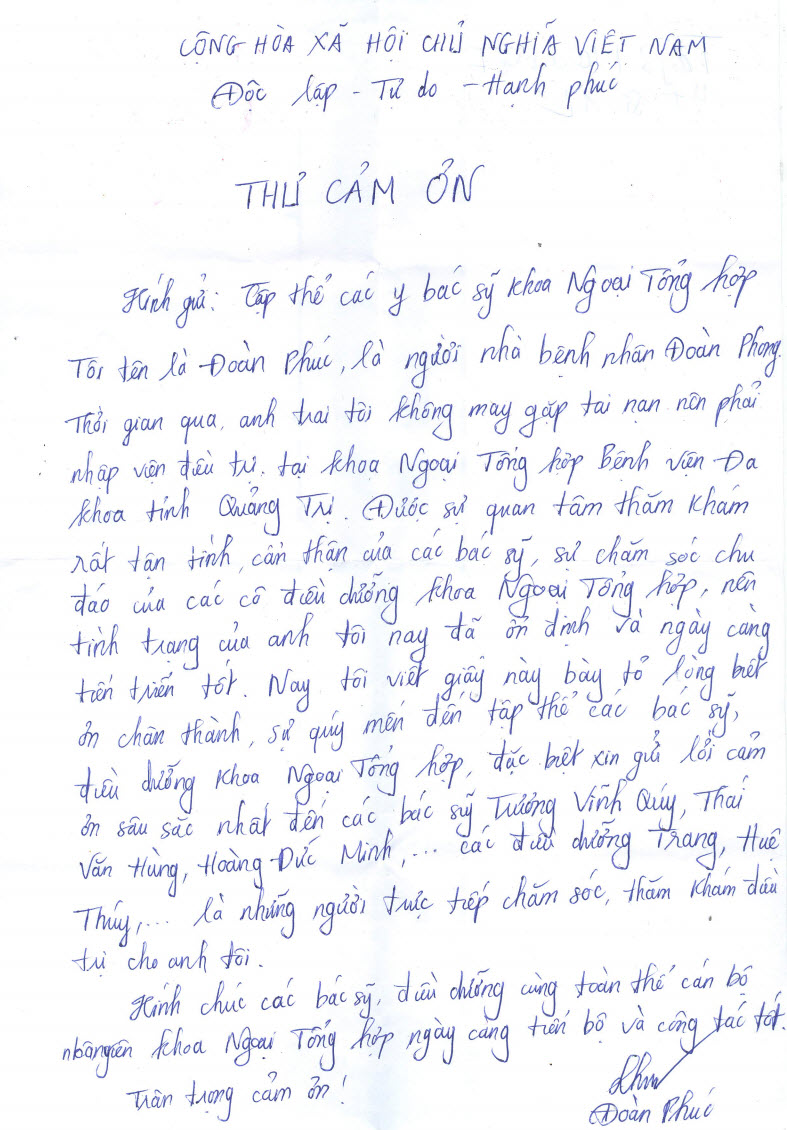 CỘNG HÒA XÃ HỘI CHỦ NGHĨA VIỆT NAM
Độc lập - Tự do - Hạnh phúc
THƯ CẢM ƠN
Kính gửi: Tập thể các y bác sỹ khoa Ngoại Tổng hợp
Tôi tên là Đoàn Phúc, là người nhà bệnh nhân Đoàn Phong.
Thời gian qua, anh trai tôi không may gặp tai nạn nên phải
nhập viện điều trị tại khoa Ngoại Tổng hợp Bệnh viện Đa
khoa tỉnh Quảng Trị. Được sự quan tâm thăm khám
rất tận tình, cẩn thận của các bác sỹ, sự chăm sóc chu
đáo của các cô điều dưỡng khoa Ngoại Tổng hợp, nên
tình trạng của anh tôi nay đã ổn định và ngày càng
tiến triển tốt. Nay tôi viết giấy này bày tỏ lòng biết
ơn chân thành, sự quý mến đến tập thể các bác sỹ,
điều dưỡng khoa Ngoại Tổng hợp, đặc biệt xin gửi lời cảm
ơn sâu sắc nhất đến các bác sỹ Trương Vĩnh Quý, Thái
Văn Hùng, Hoàng Đức Minh,... các điều dưỡng Trang, Huệ
Thúy,... là những người trực tiếp chăm sóc, thăm khám điều
trị cho anh tôi.
Kính chúc các bác sỹ, điều dưỡng cùng toàn thể cán bộ
nhân viên khoa Ngoại Tổng hợp ngày càng tiến bộ và công tác tốt.
Trân trọng cảm ơn!
Đoàn Phúc